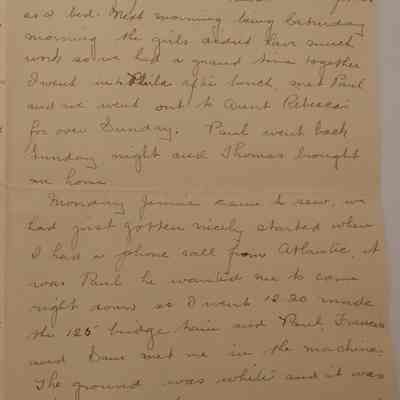 as a bed. Next morning being Saturday
morning the girls didnt have much
work so we had a grand time together
I went into Phila after lunch, met Paul
and we went out to Aunt Rebecca's
for over Sunday. Paul went back
Sunday night and Thomas brought
me home.
Monday Jennie came to sew, we
had just gotten nicely started when
I had a phone call from Atlantic, it
was Paul he wanted me to come
right down so I went 12.20 made
the 125 bridge train and Paul, Frances
and Dave met me in the machine.
The ground was white and it was